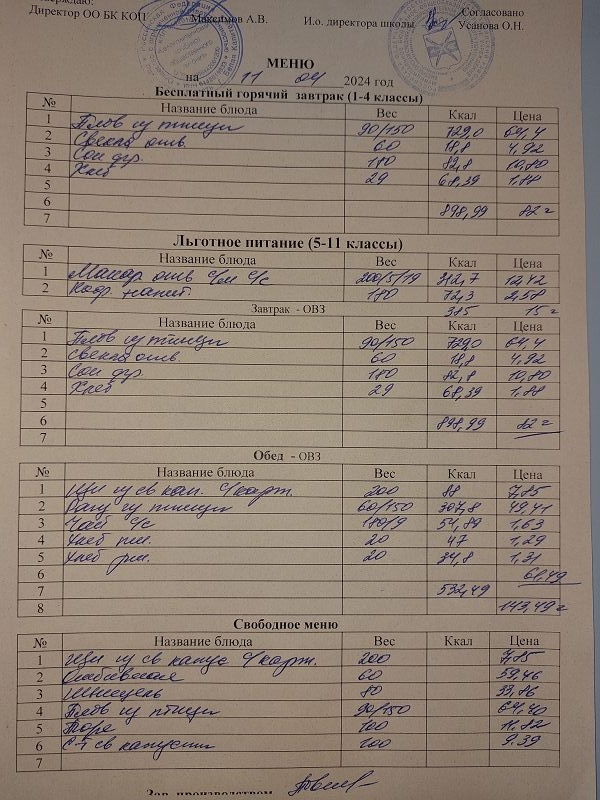 Директор ОО БК КОП Максимов А.В. И.о. директора школы Согласовано
Усанова О.Н.
МЕНЮ
на 11 04 2024 год
Бесплатный горячий завтрак (1-4 классы)
№ Название блюда Вес Ккал Цена
1 Плов из птицы 90/150 729,0 64,4
2 Свекла отв. 60 18,8 4,92
3 Сок фр. 180 82,8 10,80
4 Хлеб 29 68,39 1,88
5
6 898,99 82=
7
Льготное питание (5-11 классы)
№ Название блюда Вес Ккал Цена
1 Макар отв с/м с/с 200/5/19 312,7 12,42
2 Коф. напит. 180 72,3 2,58
Завтрак - ОВЗ 385 15=
№ Название блюда Вес Ккал Цена
1 Плов из птицы 90/150 729,0 64,4
2 Свекла отв. 60 18,8 4,92
3 Сок фр. 180 82,8 10,80
4 Хлеб 29 68,39 1,88
5
6 898,99 82=
7
Обед - ОВЗ
№ Название блюда Вес Ккал Цена
1 Щи из св кап. с/карт. 200 88 7,85
2 Рагу из птицы 60/150 307,8 49,41
3 Чай с/с 180/9 54,89 1,63
4 Хлеб пш. 20 47 1,29
5 Хлеб рж. 20 34,8 1,31
6 61,49
7 532,49
8 143,49=
Свободное меню
№ Название блюда Вес Ккал Цена
1 Щи из св капус с/карт. 200 7,85
2 60 59,46
3 Шницель 80 33,86
4 Плов из птицы 90/150 64,40
5 Пюре 100 11,82
6 С-т св капусты 100 9,39
7
Зав. производством